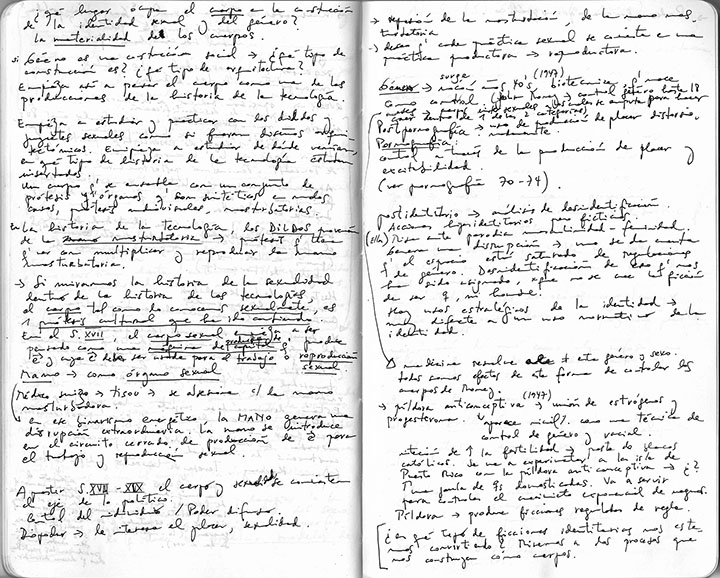 ¿qué lugar ocupa el cuerpo en la construcción
de la identidad sexual y del género?
La materialidad de los cuerpos.
si Género es una construcción social → ¿qué tipo de
construcción es? ¿qué tipo de arquitectura?
Empieza así a pensar el cuerpo como una de las
producciones de la historia de la tecnología.
Empieza a estudiar y practicar con los dildos y
juguetes sexuales como si fueran diseños arqui-
tectónicos. Empieza a estudiar de dónde venían,
en qué tipo de historia de la tecnología estaban
insertados.
Un cuerpo q' se ensambla con un conjunto de
prótesis y órganos y son sintéticos en muchos
casos, individuales, masturbatorias.
En la historia de la tecnología, los DILDOS
de la mano masturbadora → prótesis q' tienen
q' ver con multiplicar y reproducir la mano
masturbadora.
→ Si miramos la historia de la sexualidad
dentro de la historia de las tecnologías
el cuerpo tal como lo conocemos sexualmente, es
1 cultural que ha ido cambiando.
En el S. XVII, el cuerpo sexual empieza a ser
pensado como una máquina de capital q' produce
ē y cuya ē debe ser usada para el trabajo o reproducción
sexual
Mano → como órgano sexual
Médico suizo → Tisou → se obsesiona s/ la mano
masturbadora.
en ese binarismo energético la MANO genera una
disrupción extraordinaria. La mano se introduce
en el circuito cerrado de producción de ē para
el trabajo y reproducción sexual.
A partir S. XVIII - XIX el cuerpo y sexualidad se convierten
el eje de lo político.
Control del individuo / Poder difuso.
Biopoder → le interesa el placer, sexualidad.
→ represión de la masturbación, de la mano mas-
turbadora
→ deseo q' cada práctica sexual se convierta en una
práctica productora → reproductora.
surge (1947)
Género → noción años 40's, biotecnica, q' nace
como control (John Money → control género hasta 18
meses
Postpornografía → modo de producción de placer distorsio-
nadamente.
Pornografía:
control a través de la producción de placer y
excitabilidad.
(ver pornografía 70 - 74).
postidentitario → análisis de desidentificación.
Acciones hiperidentitarias pero ficticias.
(ella) Risa ante parodia masculinidad - feminidad.
Genera una disrupción → uno se da cuenta
q' el espacio está saturado de regulaciones
de género. Desidentificación de eso q' nos
han sido asignado, xque no se cree la ficción
de ser q, ni hombre.
Hay usos estratégicos de la identidad →
muy diferente a un uso normativo de la
identidad.
La medicina resuelve ≠ entre género y sexo.
todos somos efectos de esta forma de controlar los
cuerpos de Money. (1947)
→ píldora anticonceptiva → unión de estrógenos y
progesterona. (aparece inicial/. como una técnica de
control de género y racial.
intención de ↑ la fertilidad → parte de blancos
católicos. Se va a experimentar en la isla de
Puerto Rico con la píldora anticonceptiva → ¿?
de domesticadas. Va a servir
para controlar el crecimiento exponencial de negros.
Píldora → produce ficciones regulados de regla.
¿en qué tipo de ficciones identitarias nos este-
mos convirtiendo? Miremos a dos procesos que
nos construyan cómo cuerpos.